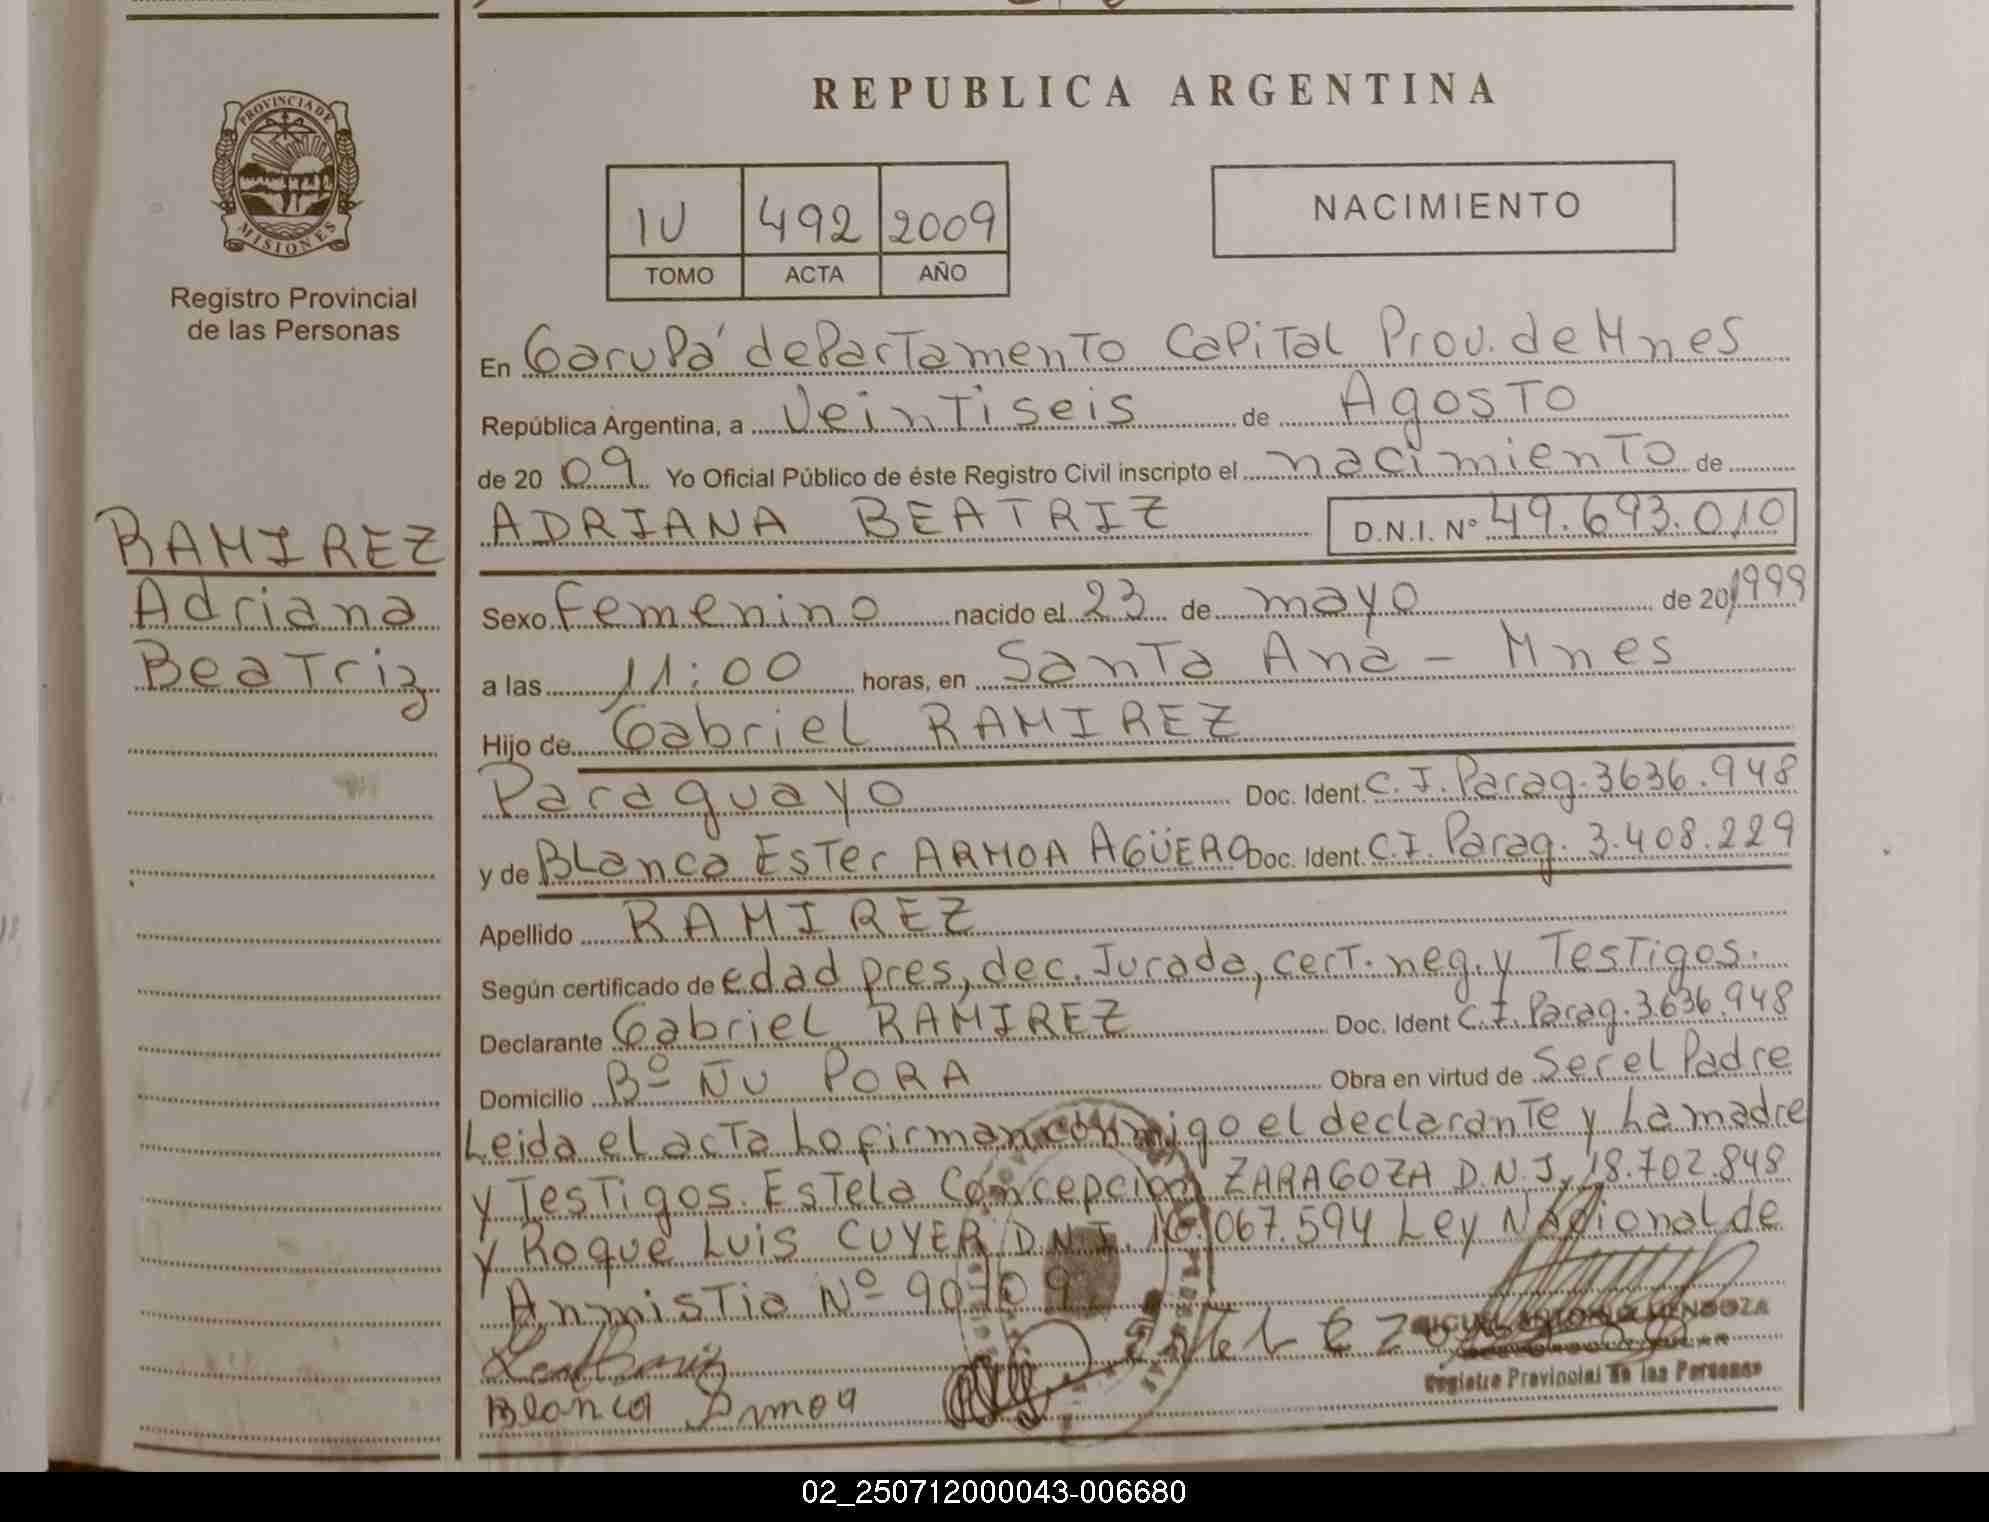 REPUBLICA ARGENTINA
PROVINCIA DE MISIONES
Registro Provincial
de las Personas
1U 492 2009
TOMO ACTA AÑO
NACIMIENTO
En Garupá departamento Capital Prov. de Mnes
República Argentina, a Veintiseis de Agosto
de 20 09 Yo Oficial Público de éste Registro Civil inscripto el nacimiento de
RAMIREZ
Adriana
Beatriz
ADRIANA BEATRIZ D.N.I. Nº 49.693.010
Sexo Femenino nacido el 23 de mayo de 20/1999
a las 11:00 horas, en Santa Ana - Mnes
Hijo de Gabriel RAMIREZ
Paraguayo Doc. Ident. C.I. Parag. 3636.948
y de Blanca Ester ARMOA AGÜERO Doc. Ident. C.I. Parag. 3.408.229
Apellido RAMIREZ
Según certificado de edad pres, dec. Jurada, cert. neg. y Testigos.
Declarante Gabriel RAMIREZ Doc. Ident C.I. Parag. 3.636.948
Domicilio Bº ÑU PORA Obra en virtud de Ser el Padre
Leida el acta Lo firman conmigo el declarante y La madre
y Testigos. Estela Concepcion ZARAGOZA D.N.I. 18.702.848
y Roque Luis CUYER D.N.I. 16.067.594 Ley Nacional de
Anmistia Nº
MIGUEL ANTONIO MENDOZA
Registro Provincial de las Personas
Blanca Armoa
02_250712000043-006680